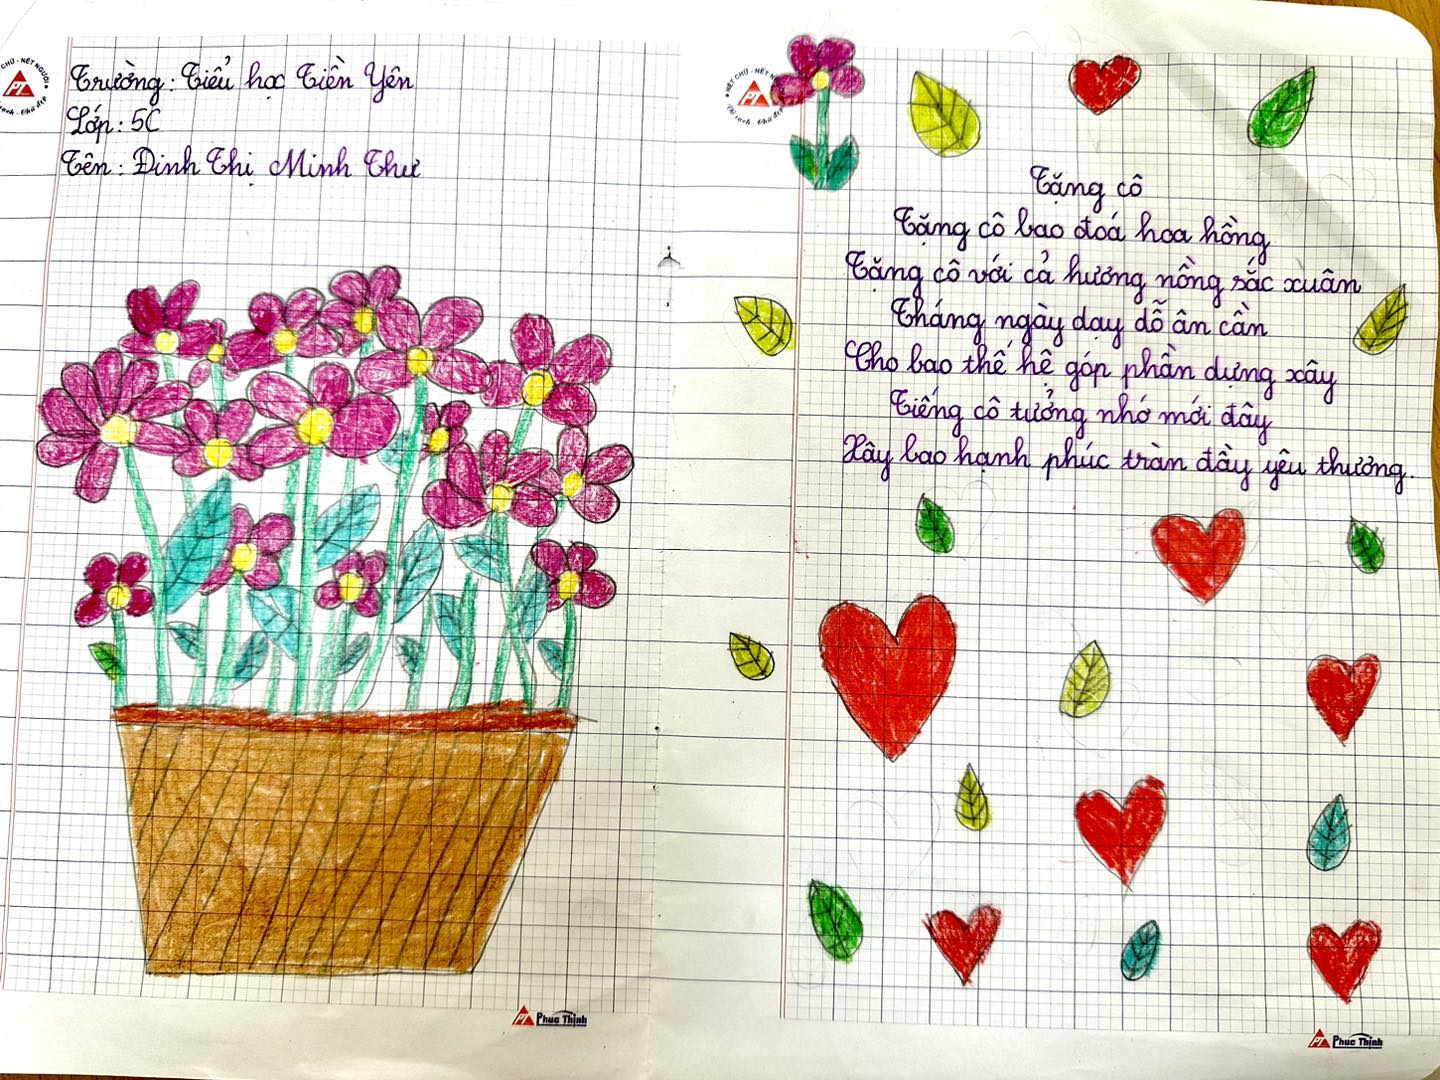 Trường: Tiểu học Tiền Yên
Lớp: 5C
Tên: Đinh Thị Minh Thư
Tặng cô
Tặng cô bao đoá hoa hồng
Tặng cô với cả hương nồng sắc xuân
Tháng ngày dạy dỗ ân cần
Cho bao thế hệ góp phần dựng xây
Tiếng cô tưởng nhớ mới đây
Xây bao hạnh phúc tràn đầy yêu thương.
CHỮ - NẾT NGƯỜI
PT
NÉT CHỮ - NẾT N
PT
PT Phuc Thịnh
PT Phuc Thịnh